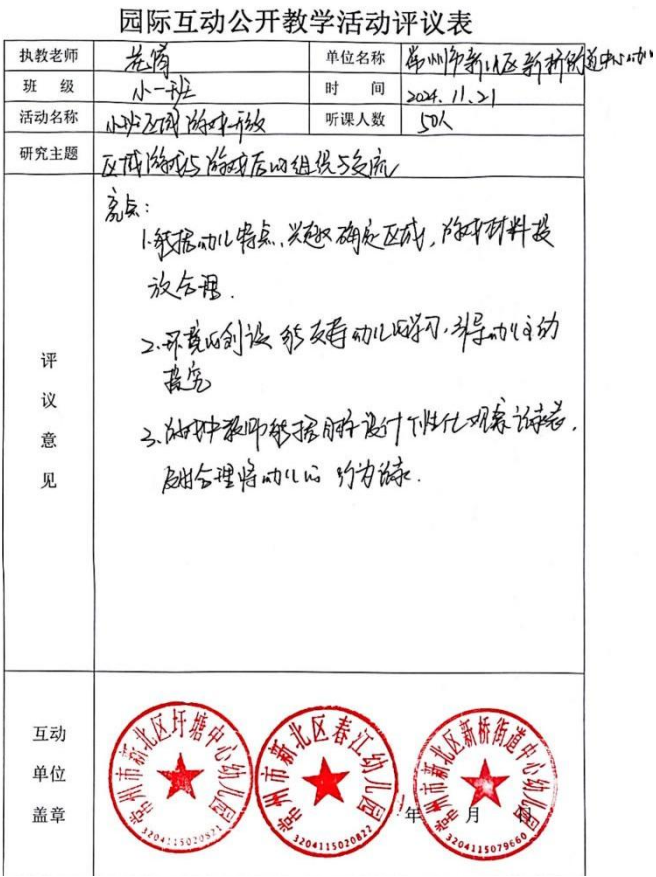 园际互动公开教学活动评议表
执教老师 单位名称 常州市新北区新桥街道中心幼儿
班 级 小一班 时 间 2024.11.21
活动名称 小班区域游戏开放 听课人数 50人
研究主题 区域游戏与游戏后的组织与交流
评议意见
亮点：
1.根据幼儿特点、兴趣确定区域，游戏材料投
放合理.
2.环境的创设能支持幼儿的学习,引导幼儿主动
探究
3.游戏中教师能据目标设计个性化观察记录表,
及时合理将幼儿的行为记录.
互动
单位
盖章
常州市新北区圩塘中心幼儿园
3204115020821
常州市新北区春江幼儿园
3204115020822
常州市新北区新桥街道中心幼儿园
3204115079660
年 月 日